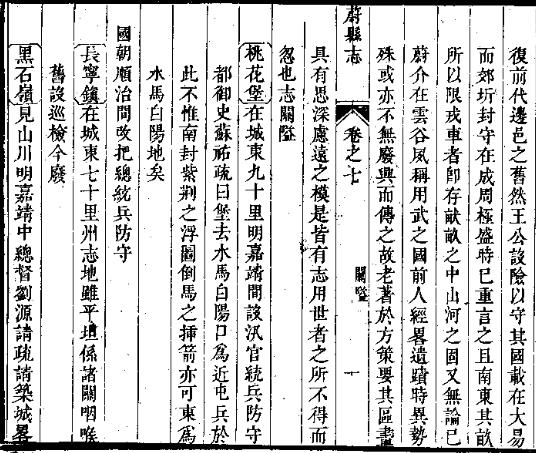 復前代邊邑之舊然王公設險以守其國載在大易
而郊圻封守在成周極盛時已重言之且南東其畝
所以限戎車者卽存献畝之中山河之固又無論已
蔚介在雲谷夙稱用武之國前人經畧遺蹟時異勢
殊或亦不無廢興而傳之故老著於方策要其區畫
蔚縣志
卷之七
關隘
具有思深慮遠之模是皆有志用世者之所不得而
忽也志關隘
桃花堡在城東九十里明嘉靖間設汛官統兵防守
都御史蘇祐疏曰堡去水馬白陽口爲近屯兵於
此不惟南封紫荆之浮圖倒馬之挿箭亦可東爲
水馬白陽地矣
國朝順治間改把總統兵防守
長寧鎭在城東七十里州志地雖平坦係諸關咽喉
舊設巡檢今廢
黑石嶺見山川明嘉靖中總督劉源請疏請築城畧